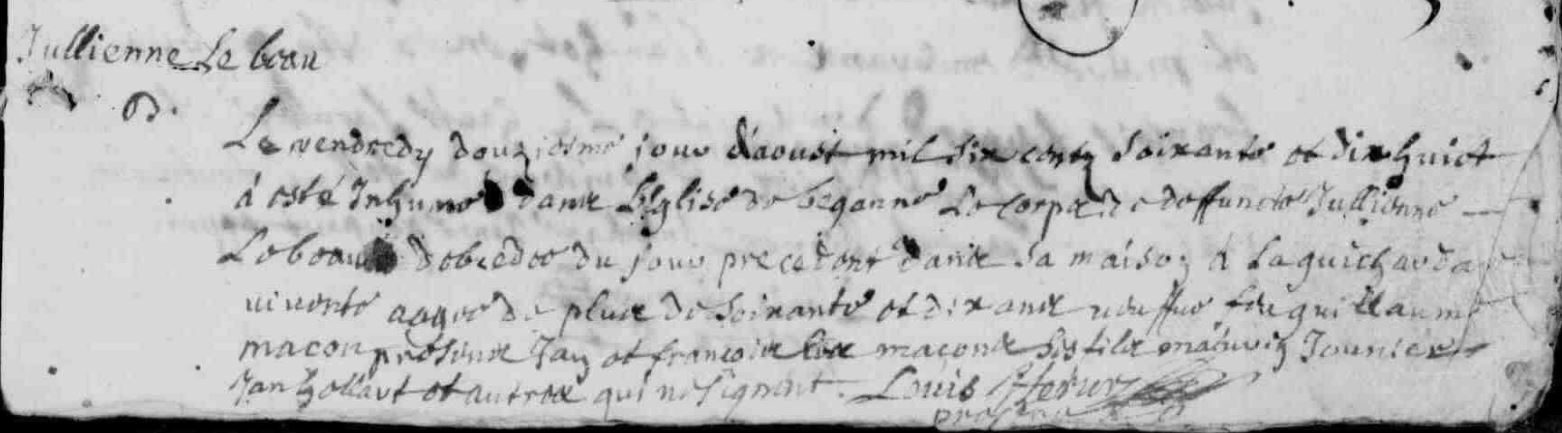 Jullienne Le beau
Le vendredy douziesme jour d'aoust mil six centz soixante et dix huict
a esté Inhumé dans L'Eglise de beganne Le corps de deffuncte Jullienne
Le beau decedee du jour precedent dans sa maison à La guicharda
vivente aagee de plus de soixante et dix ans veufve feu guillaume
macon presens Jan et francois les macons ses filz mathurin
Jan Hollart et autres qui ne signent. Louis